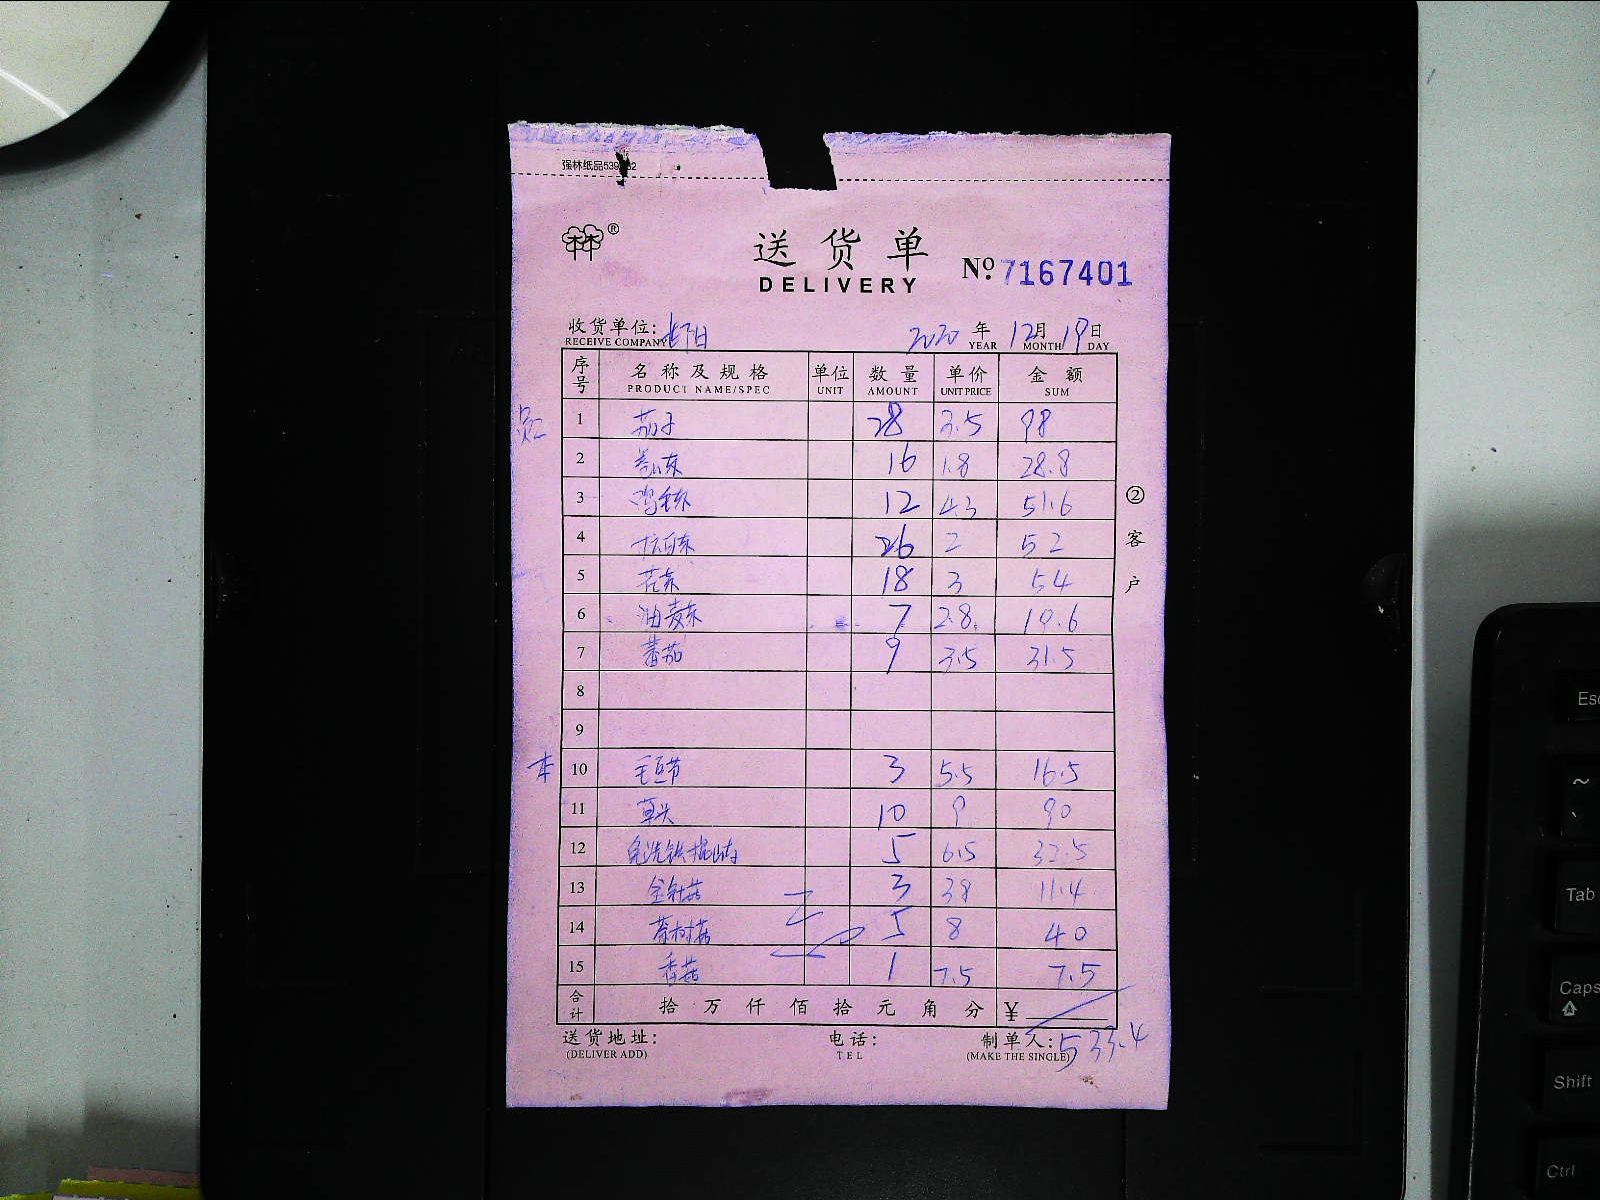 强林纸品539
林林®
送货单
DELIVERY
Nº 7167401
收货单位:
RECEIVE COMPANY
2020 年 12月 19日
YEAR MONTH DAY
序号 名称及规格 单位 数量 单价 金额
PRODUCT NAME/SPEC UNIT AMOUNT UNIT PRICE SUM
员工
1 茄子 28 3.5 98
2 16 1.8 28.8
3 鸡毛菜 12 4.3 51.6
4 26 2 52
5 花菜 18 3 54
6 油麦菜 7 2.8 19.6
7 番茄 9 3.5 31.5
8
9
本 10 毛豆节 3 5.5 16.5
11 草头 10 9 90
12 免洗铁棍山药 5 6.5 32.5
13 金针菇 3 38 11.4
14 茶树菇 5 8 40
15 香菇 1 7.5 7.5
合计 拾万仟佰拾元角分 ¥
533.4
送货地址: 电话: 制单人:
(DELIVER ADD) TEL (MAKE THE SINGLE)
②客户
Esc
~
Tab
Caps
Shift
Ctrl